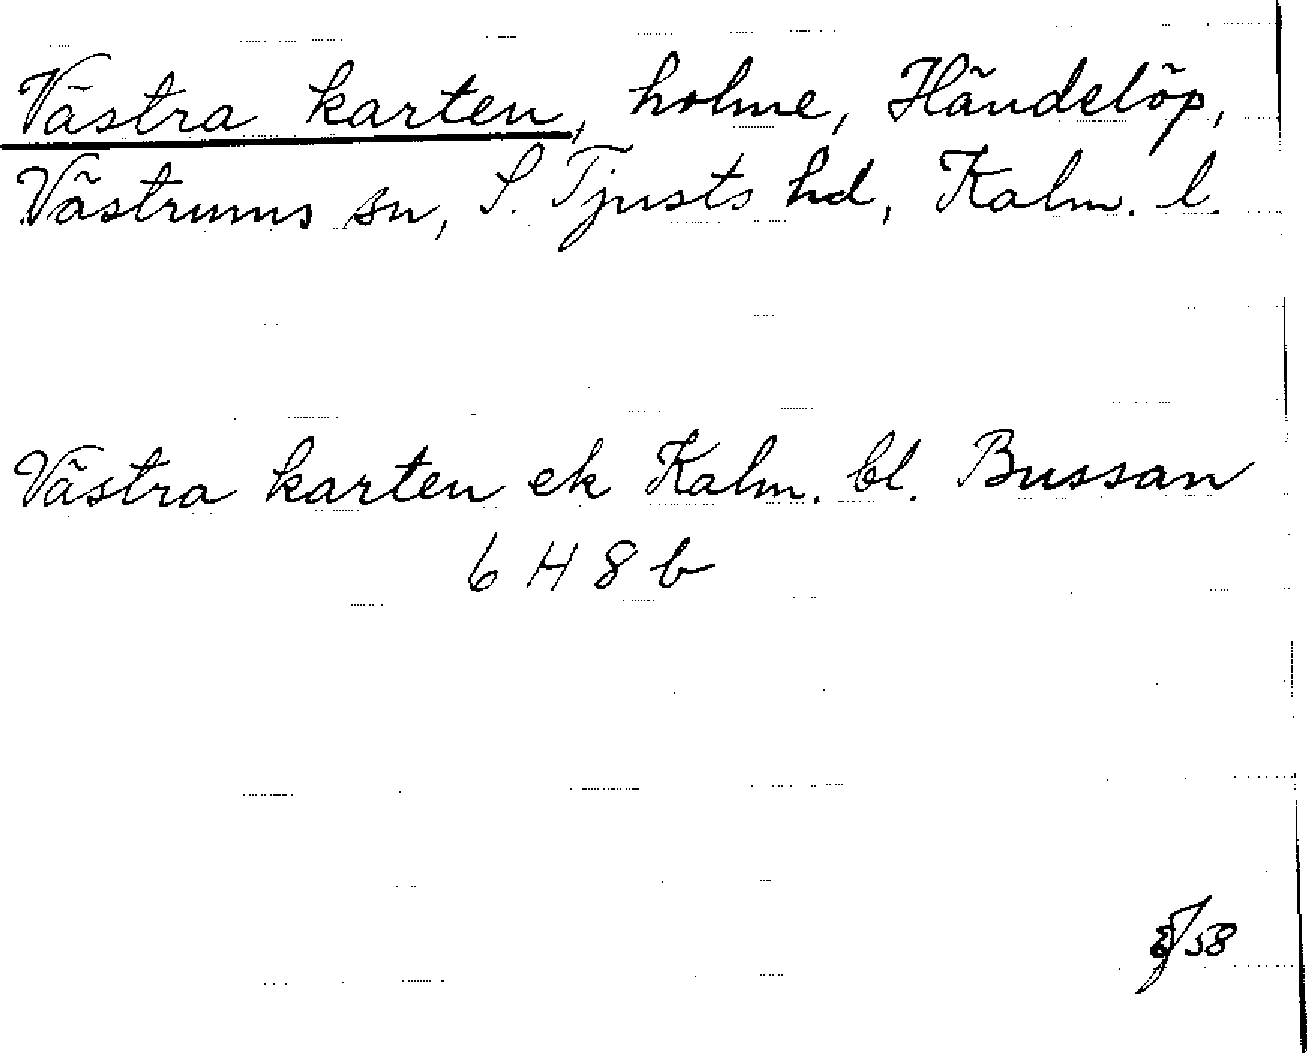 Västra karten, holme, Händelöp,
Västrums sn, S. Tjusts hd, Kalm. l.
Västra karten ek Kalm. bl. Bussan
6 H 8 b
58